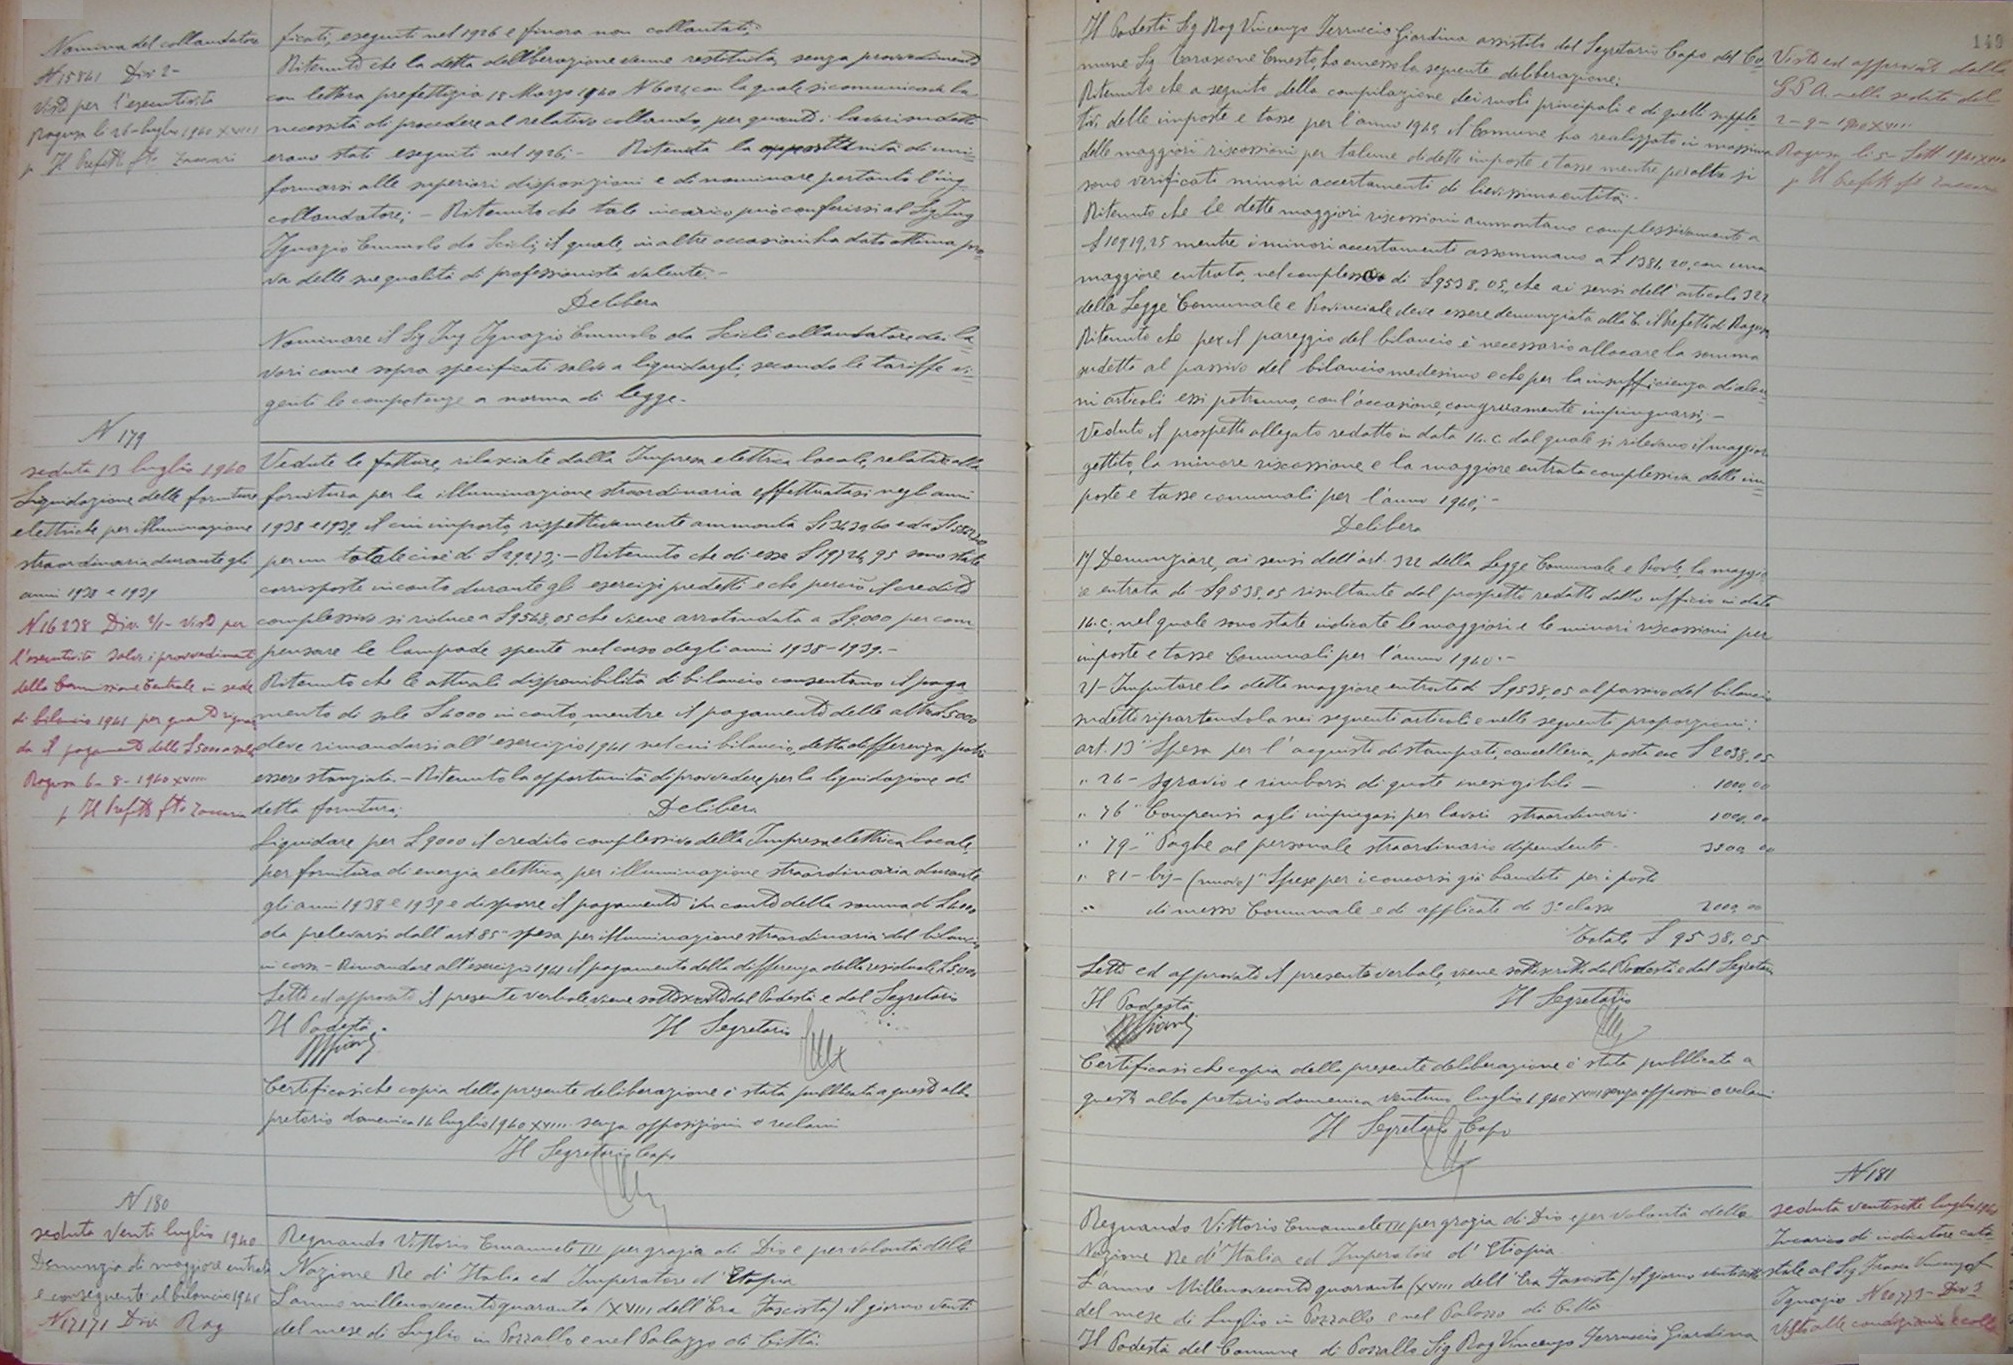 Nomina del collaudatore
N 15841 Div 2-
Visto per l'esecutività
Ragusa li 26 luglio 1940 XVIII
p Il Prefetto fto Zaccari
ficati, eseguiti nel 1926 e finora non collaudati;-
Ritenuto che la detta deliberazione venne restituita, senza provvedimento
con lettera prefettizia 18 Marzo 1940 N con la quale si comunicava la
necessità di procedere al relativo collaudo, per quanto i lavori suddetti
erano stati eseguiti nel 1926;- Ritenuta la opportunità di uni=
formarsi alle superiori disposizioni e di nominare pertanto l'ing-
collaudatore; - Ritenuto che tale incarico può conferirsi al Sig Ing
Ignazio Emmolo da Scicli, il quale, in altre occasioni ha dato ottima pro=
va delle sue qualità di professionista valente.-
Delibera
Nominare il Sig Ing Ignazio Emmolo da Scicli collaudatore dei la=
vori come sopra specificati salvo a liquidargli, secondo le tariffe vi=
genti le competenze a norma di legge.
N 179
seduta 13 luglio 1940
Liquidazione delle forniture
elettriche per illuminazione
straordinaria durante gli
anni 1938 e 1939
N 16238 Div. 2/1- Visto per
l'esecutività salvi i provvedimenti
della Commissione Centrale in sede
di bilancio 1941 per quanto riguar
da il pagamento delle L 5000 a saldo
Ragusa 6-8-1940 XVIII
p Il Prefetto fto Zaccaria
Vedute le fatture, rilasciate dalla Impresa elettrica locale, relative alla
fornitura per la illuminazione straordinaria effettuatasi negli anni
1938 e 1939, il cui importo, rispettivamente ammonta L ed a L
per un totale cioè di L 29273;- Ritenuto che di esse L 19724,95 sono state
corrisposte in conto durante gli esercizi predetti e che perciò il credito
complessivo si riduce a L 9548,05 che viene arrotondata a L 9000 per com=
pensare le lampade spente nel corso degli anni 1938-1939.-
Ritenuto che le attuali disponibilità di bilancio consentono il paga=
mento di sole L 4000 in conto, mentre il pagamento delle altre L 5000
deve rimandarsi all'esercizio 1941 nel cui bilancio, detta differenza, potrà
essere stanziata.- Ritenuto la opportunità di provvedere per la liquidazione di
detta fornitura;
Delibera
Liquidare per L 9000 il credito complessivo della Impresa elettrica locale,
per fornitura di energia elettrica, per illuminazione straordinaria durante
gli anni 1938 e 1939 e disporre il pagamento in conto della somma di L 4000
da prelevarsi dall'art 85 "spesa per illuminazione straordinaria" del bilancio
in corso - Rimandare all'esercizio 1941 il pagamento della differenza della residuale L 5000
Letto ed approvato il presente verbale, viene sottoscritto dal Podestà e dal Segretario
Il Podestà Il Segretario
Certificasi che copia della presente deliberazione è stata pubblicata a questo albo
pretorio domenica 14 luglio 1940 XVIII senza opposizioni o reclami
Il Segretario Capo
N 180
seduta venti luglio 1940
Denunzia di maggiore entrata
e conseguente al bilancio 1940
N 17171 Div. Rag
Regnando Vittorio Emanuele III per grazia di Dio e per volontà della
Nazione Re d'Italia ed Imperatore d'Etiopia
L'anno millenovecentoquaranta (XVIII dell'Era Fascista) il giorno venti
del mese di Luglio in Pozzallo e nel Palazzo di Città.
149
Il Podestà Sig Rag Vincenzo Ferruccio Giardina assistito dal Segretario Capo del Co=
mune Sig Carascone Ernesto, ha emesso la seguente deliberazione:
Ritenuto che a seguito della compilazione dei ruoli principali e di quelli supple=
tivi delle imposte e tasse per l'anno 1940 il Comune ha realizzato in massima
delle maggiori riscossioni per talune di dette imposte e tasse mentre per altre si
sono verificati minori accertamenti di lievissima entità.-
Ritenuto che le dette maggiori riscossioni ammontano complessivamente a
L 10919,25 mentre i minori accertamenti assommano a L 1381,20, con una
maggiore entrata, nel complesso di L 9538,05, che ai sensi dell'articolo 322
della Legge Comunale e Provinciale deve essere denunziata alla E. il Prefetto di Ragusa
Ritenuto che per il pareggio del bilancio è necessario allocare la somma
sudetta al passivo del bilancio medesimo e che per la insufficienza di alcu=
ni articoli essi potranno, con l'occasione, congruamente impinguarsi;-
Veduto il prospetto allegato redatto in data 14.c. dal quale si rilevano il maggior
gettito, la minore riscossione e la maggiore entrata complessiva delle im=
poste e tasse comunali per l'anno 1940;-
Delibera
1°) Denunziare, ai sensi dell'art. 322 della Legge Comunale e Prov.le, la maggio
re entrata di L 9538,05 risultante dal prospetto redatto dallo ufficio in data
14.c; nel quale sono state indicate le maggiori e le minori riscossioni per
imposte e tasse Comunali per l'anno 1940.-
2)- Imputare la detta maggiore entrata di L 9538,05 al passivo del bilancio
sudetto ripartendola nei seguenti articoli e nelle seguenti proporzioni:
art. 13 "Spesa per l'acquisto di stampati, cancelleria, posta ecc L 2038,05
" 26 - Sgravio e rimborsi di quote inesigibili - 1000,00
" 76 "Compensi agli impiegati per lavori straordinari - 1000,00
" 79 - "Paghe al personale straordinario dipendente - 3500,00
" 81 - bis - (nuovo) "Spese per i concorsi già banditi per i posti
" di messo Comunale e di applicato di 3a classe 2000,00
Totale L 9538,05
Letto ed approvato il presente verbale, viene sottoscritto dal Podestà e dal Segretario
Il Podestà Il Segretario
Certificasi che copia della presente deliberazione è stata pubblicata a
questo albo pretorio domenica ventuno luglio 1940 XVIII senza opposizioni o reclami
Il Segretario Capo
Regnando Vittorio Emanuele III per grazia di Dio e per volontà della
Nazione Re d'Italia ed Imperatore d'Etiopia
L'anno Millenovecentoquaranta (XVIII dell'Era Fascista) il giorno ventisette
del mese di Luglio in Pozzallo e nel Palazzo di Città
Il Podestà del Comune di Pozzallo Sig Rag Vincenzo Ferruccio Giardina
Visto ed approvato dalla
G.P.A. nella seduta del
2-9-1940 XVIII
Ragusa li 5- Sett 1940 XVIII
p Il Prefetto fto Zaccaria
N 181
seduta ventisette luglio 1940
Incarico di indicatore cata
stale al Sig
Ignazio N 20773- Div 2
Visto alle condizioni